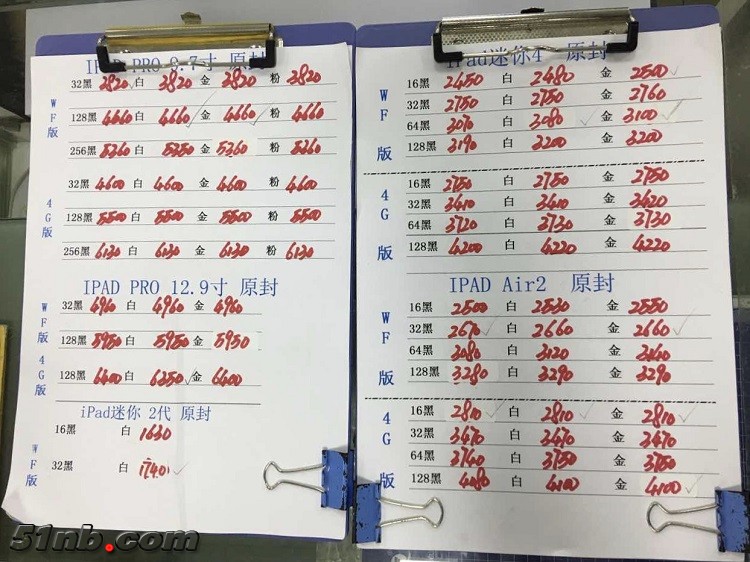 IPAD PRO 9.7寸 原封
WF版
32黑 3820 白 3820 金 3820 粉 3820
128黑 4660 白 4660 金 4660 粉 4660
256黑 5360 白 5350 金 5360 粉 5360
4G版
32黑 4600 白 4600 金 4600 粉 4600
128黑 5500 白 5500 金 5500 粉 5500
256黑 6130 白 6130 金 6130 粉 6130
IPAD PRO 12.9寸 原封
WF版
32黑 4960 白 4960 金 4960
128黑 5950 白 5950 金 5950
4G版
128黑 6400 白 6350 金 6400
iPad迷你 2代 原封
WF版
16黑 白 1630
32黑 白 1740
iPad迷你4 原封
WF版
16黑 2450 白 2480 金 2500
32黑 2750 白 2750 金 2760
64黑 3070 白 3080 金 3100
128黑 3190 白 3200 金 3200
4G版
16黑 2750 白 2750 金 2750
32黑 3410 白 3410 金 3420
64黑 3720 白 3730 金 3730
128黑 4200 白 4220 金 4220
IPAD Air2 原封
WF版
16黑 2500 白 2530 金 2550
32黑 2670 白 2660 金 2660
64黑 3080 白 3120 金 3140
128黑 3280 白 3290 金 3290
4G版
16黑 2810 白 2810 金 2810
32黑 3470 白 3470 金 3470
64黑 3740 白 3750 金 3750
128黑 4080 白 4100 金 4100
51nb.com